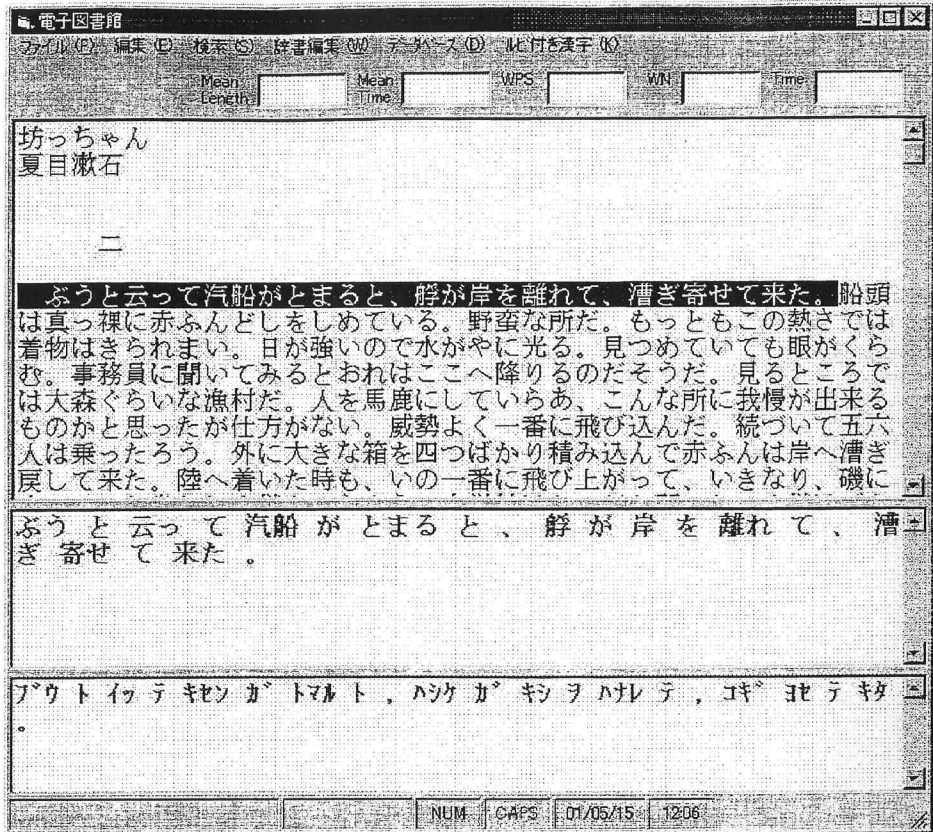 電子図書館
ファイル(F) 編集(E) 検索(S) 辞書編集(W) データベース(D) ルビ付き漢字(K)
Mean Length Mean Time WPS WN Time
坊っちゃん
夏目漱石
二
ぶうと云って汽船がとまると、艀が岸を離れて、漕ぎ寄せて来た。船頭
は真っ裸に赤ふんどしをしめている。野蛮な所だ。もっともこの熱さでは
着物はきられまい。日が強いので水がやに光る。見つめていても眼がくら
む。事務員に聞いてみるとおれはここへ降りるのだそうだ。見るところで
は大森ぐらいな漁村だ。人を馬鹿にしていらあ、こんな所に我慢が出来る
ものかと思ったが仕方がない。威勢よく一番に飛び込んだ。続づいて五六
人は乗ったろう。外に大きな箱を四つばかり積み込んで赤ふんは岸へ漕ぎ
戻して来た。陸へ着いた時も、いの一番に飛び上がって、いきなり、磯に
ぶう と 云っ て 汽船 が とまる と 、 艀 が 岸 を 離れ て 、 漕
ぎ 寄せ て 来た 。
ﾌﾞｳ ﾄ ｲｯ ﾃ ｷｾﾝ ｶﾞ ﾄﾏﾙ ﾄ , ﾊｼｹ ｶﾞ ｷｼ ｦ ﾊﾅﾚ ﾃ , ｺｷﾞ ﾖｾ ﾃ ｷﾀ
。
NUM CAPS 01/05/15 12:06